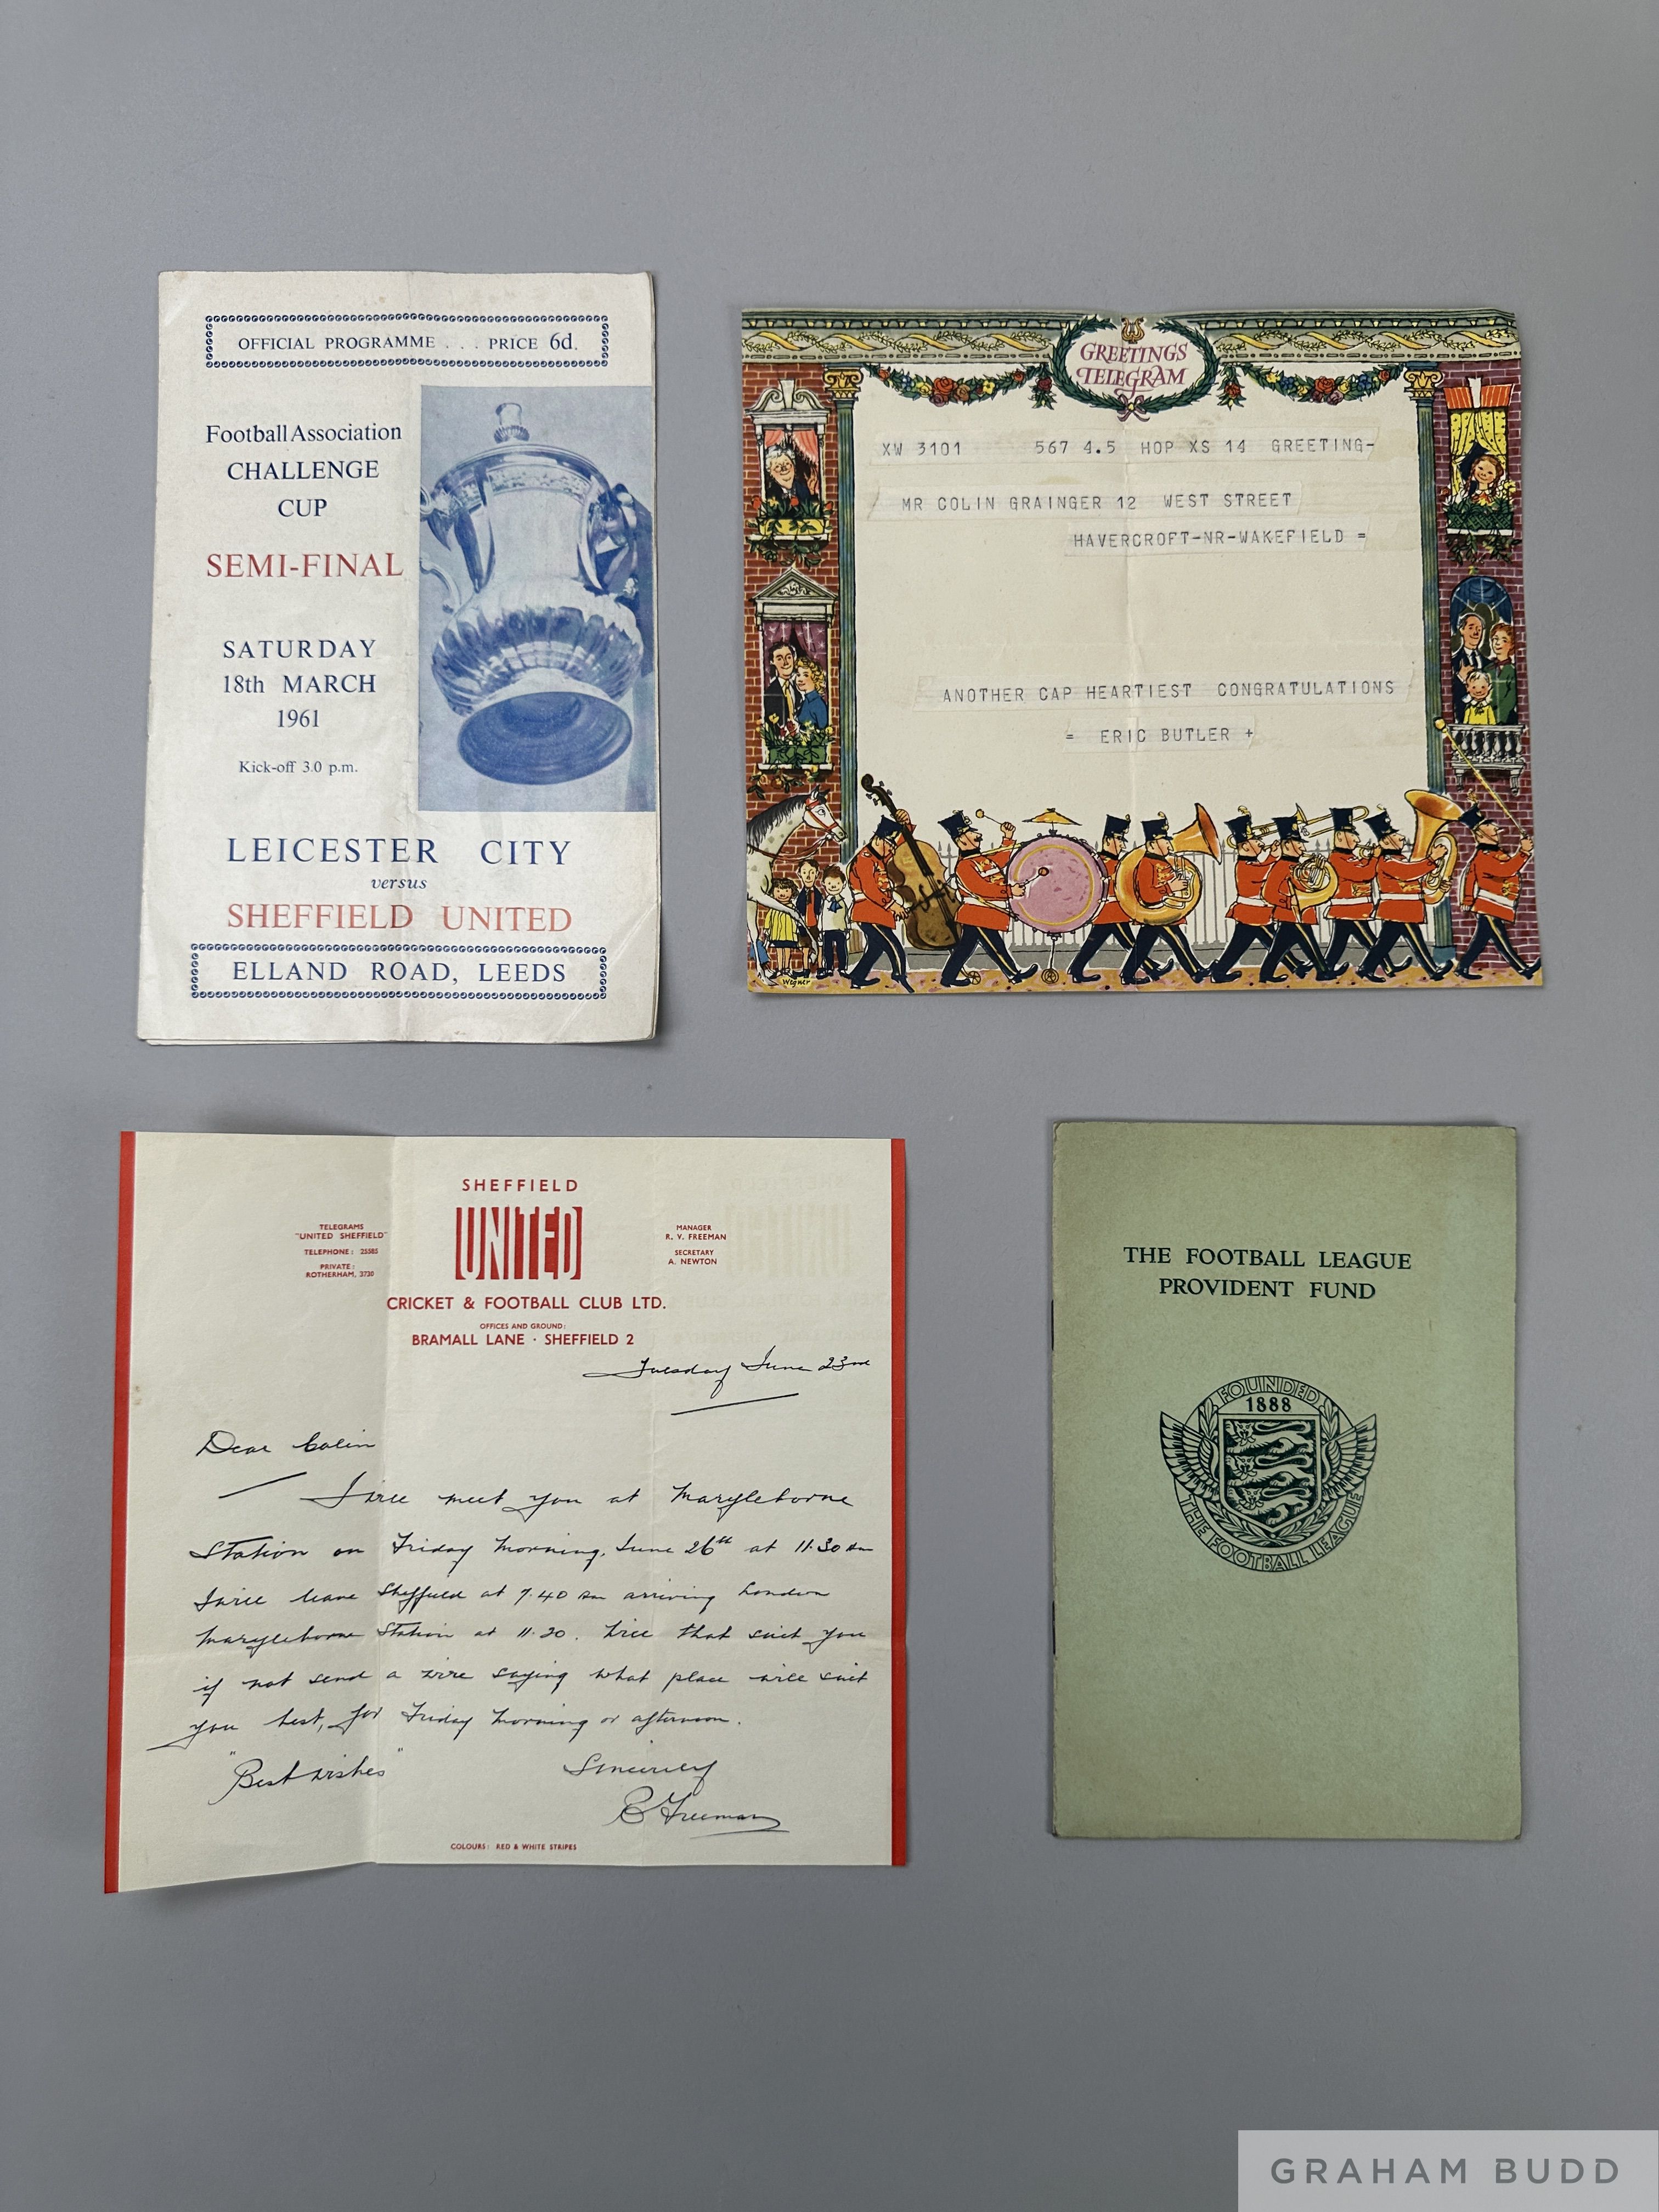 OFFICIAL PROGRAMME . . . PRICE 6d.
Football Association
CHALLENGE
CUP
SEMI-FINAL
SATURDAY
18th MARCH
1961
Kick-off 3.0 p.m.
LEICESTER CITY
versus
SHEFFIELD UNITED
ELLAND ROAD, LEEDS
GREETINGS
TELEGRAM
XW 3101 567 4.5 HOP XS 14 GREETING-
MR COLIN GRAINGER 12 WEST STREET
HAVERCROFT-NR-WAKEFIELD =
ANOTHER CAP HEARTIEST CONGRATULATIONS
= ERIC BUTLER +
Wegner
SHEFFIELD
UNITED
TELEGRAMS
"UNITED SHEFFIELD"
TELEPHONE: 25585
PRIVATE:
ROTHERHAM, 3730
MANAGER
R. V. FREEMAN
SECRETARY
A. NEWTON
CRICKET & FOOTBALL CLUB LTD.
OFFICES AND GROUND:
BRAMALL LANE · SHEFFIELD 2
Tuesday June 23rd
Dear Colin
I will meet you at Marylebone
Station on Friday Morning, June 26th at 11.30 am
I will leave Sheffield at 7.40 am arriving London
Marylebone Station at 11.20. Will that suit you
if not send a wire saying what place will suit
you best, for Friday Morning or afternoon.
"Best wishes"
Sincerely
Freeman
COLOURS: RED & WHITE STRIPES
THE FOOTBALL LEAGUE
PROVIDENT FUND
FOUNDED
1888
THE FOOTBALL LEAGUE
GRAHAM BUDD